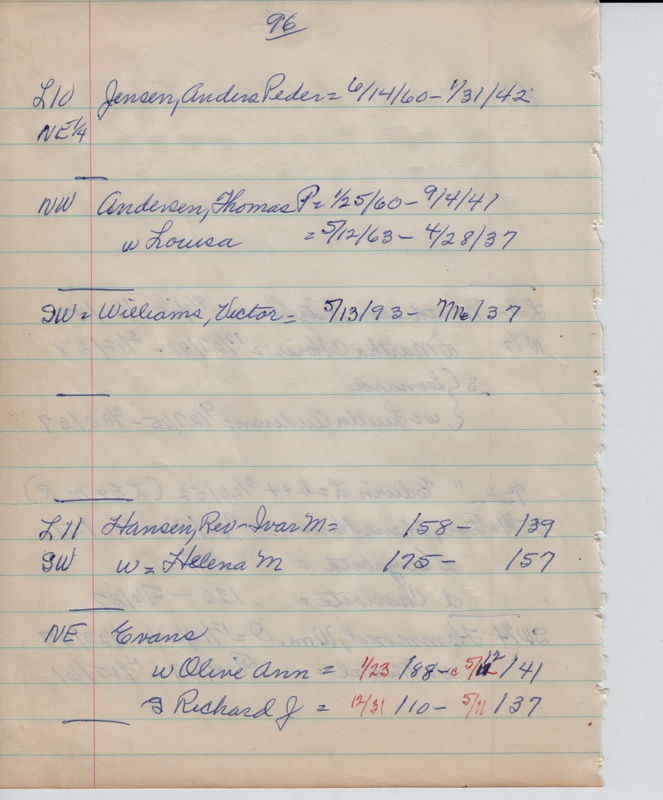 96
L10 Jensen, Anders Peder = 6/14/60 - 1/31/42
NE 1/4
NW Andersen, Thomas P = 1/25/60 - 9/4/41
w Louisa = 5/12/63 - 4/28/37
SW = Williams, Victor = 5/13/93 - /37
L11 Hansen, Rev - Ivar M = /58 - /39
SW w = Helena M /75 - /57
NE Evans
w Olive Ann = 1/23 /88 - 5/12 /41
S Richard J = 12/31 /10 - 5/11 /37